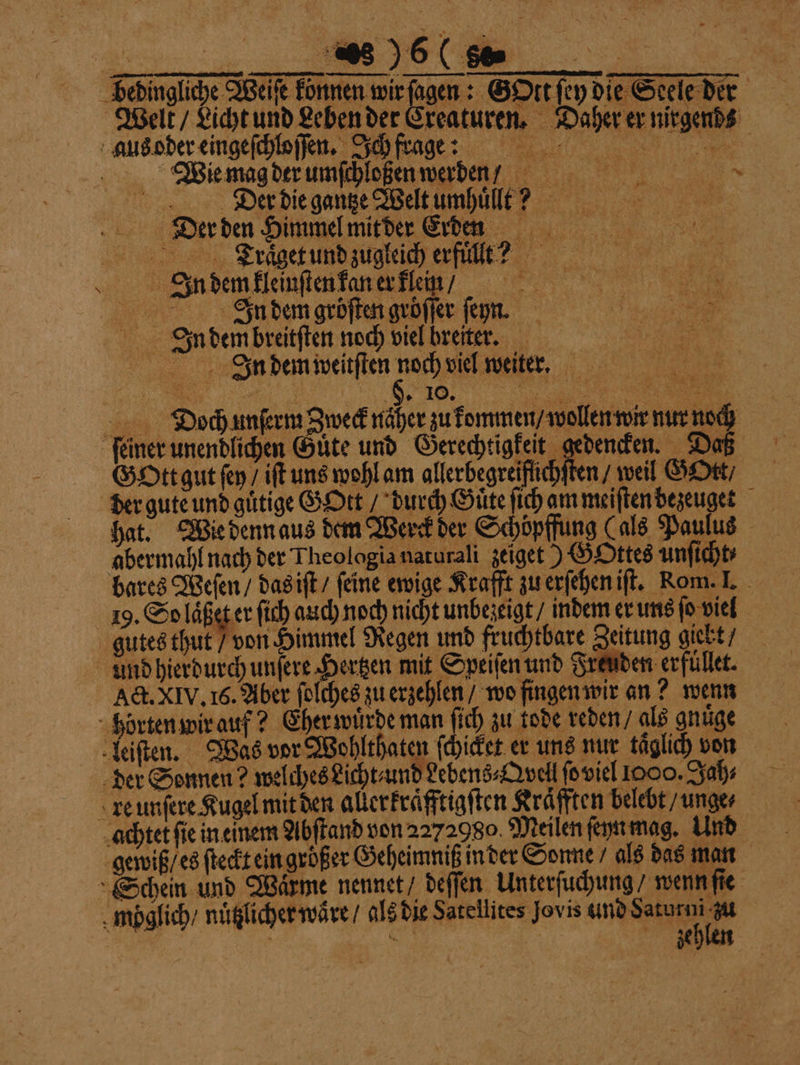 ) 6 (
bedingliche Weiſe können wir ſagen: GOtt ſey die Seele der
Welt / Licht und Leben der Creaturen. Daher er nirgends
aus oder eingeſchloſſen. Ich frage:
Wie mag der umſchloßen werden /
Der die gantze Welt umhüllt?
Der den Himmel mit der Erden
Träget und zugleich erfüllt?
In dem kleinſten kan er klein /
In dem gröſten gröſſer ſeyn.
In dem breitſten noch viel breiter.
In dem weitſten noch viel weiter.
§. 10.
Doch unſerm Zweck näher zu kommen / wollen wir nur noch
ſeiner unendlichen Güte und Gerechtigkeit gedencken. Daß
GOtt gut ſey / iſt uns wohl am allerbegreiflichſten / weil GOtt /
der gute und gütige GOtt / durch Güte ſich am meiſten bezeuget
hat. Wie denn aus dem Werck der Schöpffung (als Paulus
abermahl nach der Theologia naturali zeiget) GOttes unſicht-
bares Weſen / das iſt / ſeine ewige Krafft zu erſehen iſt. Rom. I.
19. So läßet er ſich auch noch nicht unbezeigt / indem er uns ſo viel
gutes thut / von Himmel Regen und fruchtbare Zeitung giebt /
und hierdurch unſere Hertzen mit Speiſen und Freuden erfüllet.
Act. XIV. 16. Aber ſolches zu erzehlen / wo fingen wir an? wenn
hörten wir auf? Eher würde man ſich zu tode reden / als gnüge
leiſten. Was vor Wohlthaten ſchicket er uns nur täglich von
der Sonnen? welches Licht- und Lebens-Qvell ſo viel 1000. Jah-
re unſere Kugel mit den allerkräfftigſten Kräfften belebt / unge-
achtet ſie in einem Abſtand von 2272980. Meilen ſeyn mag. Und
gewiß / es ſteckt ein größer Geheimniß in der Sonne / als das man
Schein und Wärme nennet / deſſen Unterſuchung / wenn ſie
möglich / nützlicher wäre / als die Satellites Jovis und Saturni zu
zehlen